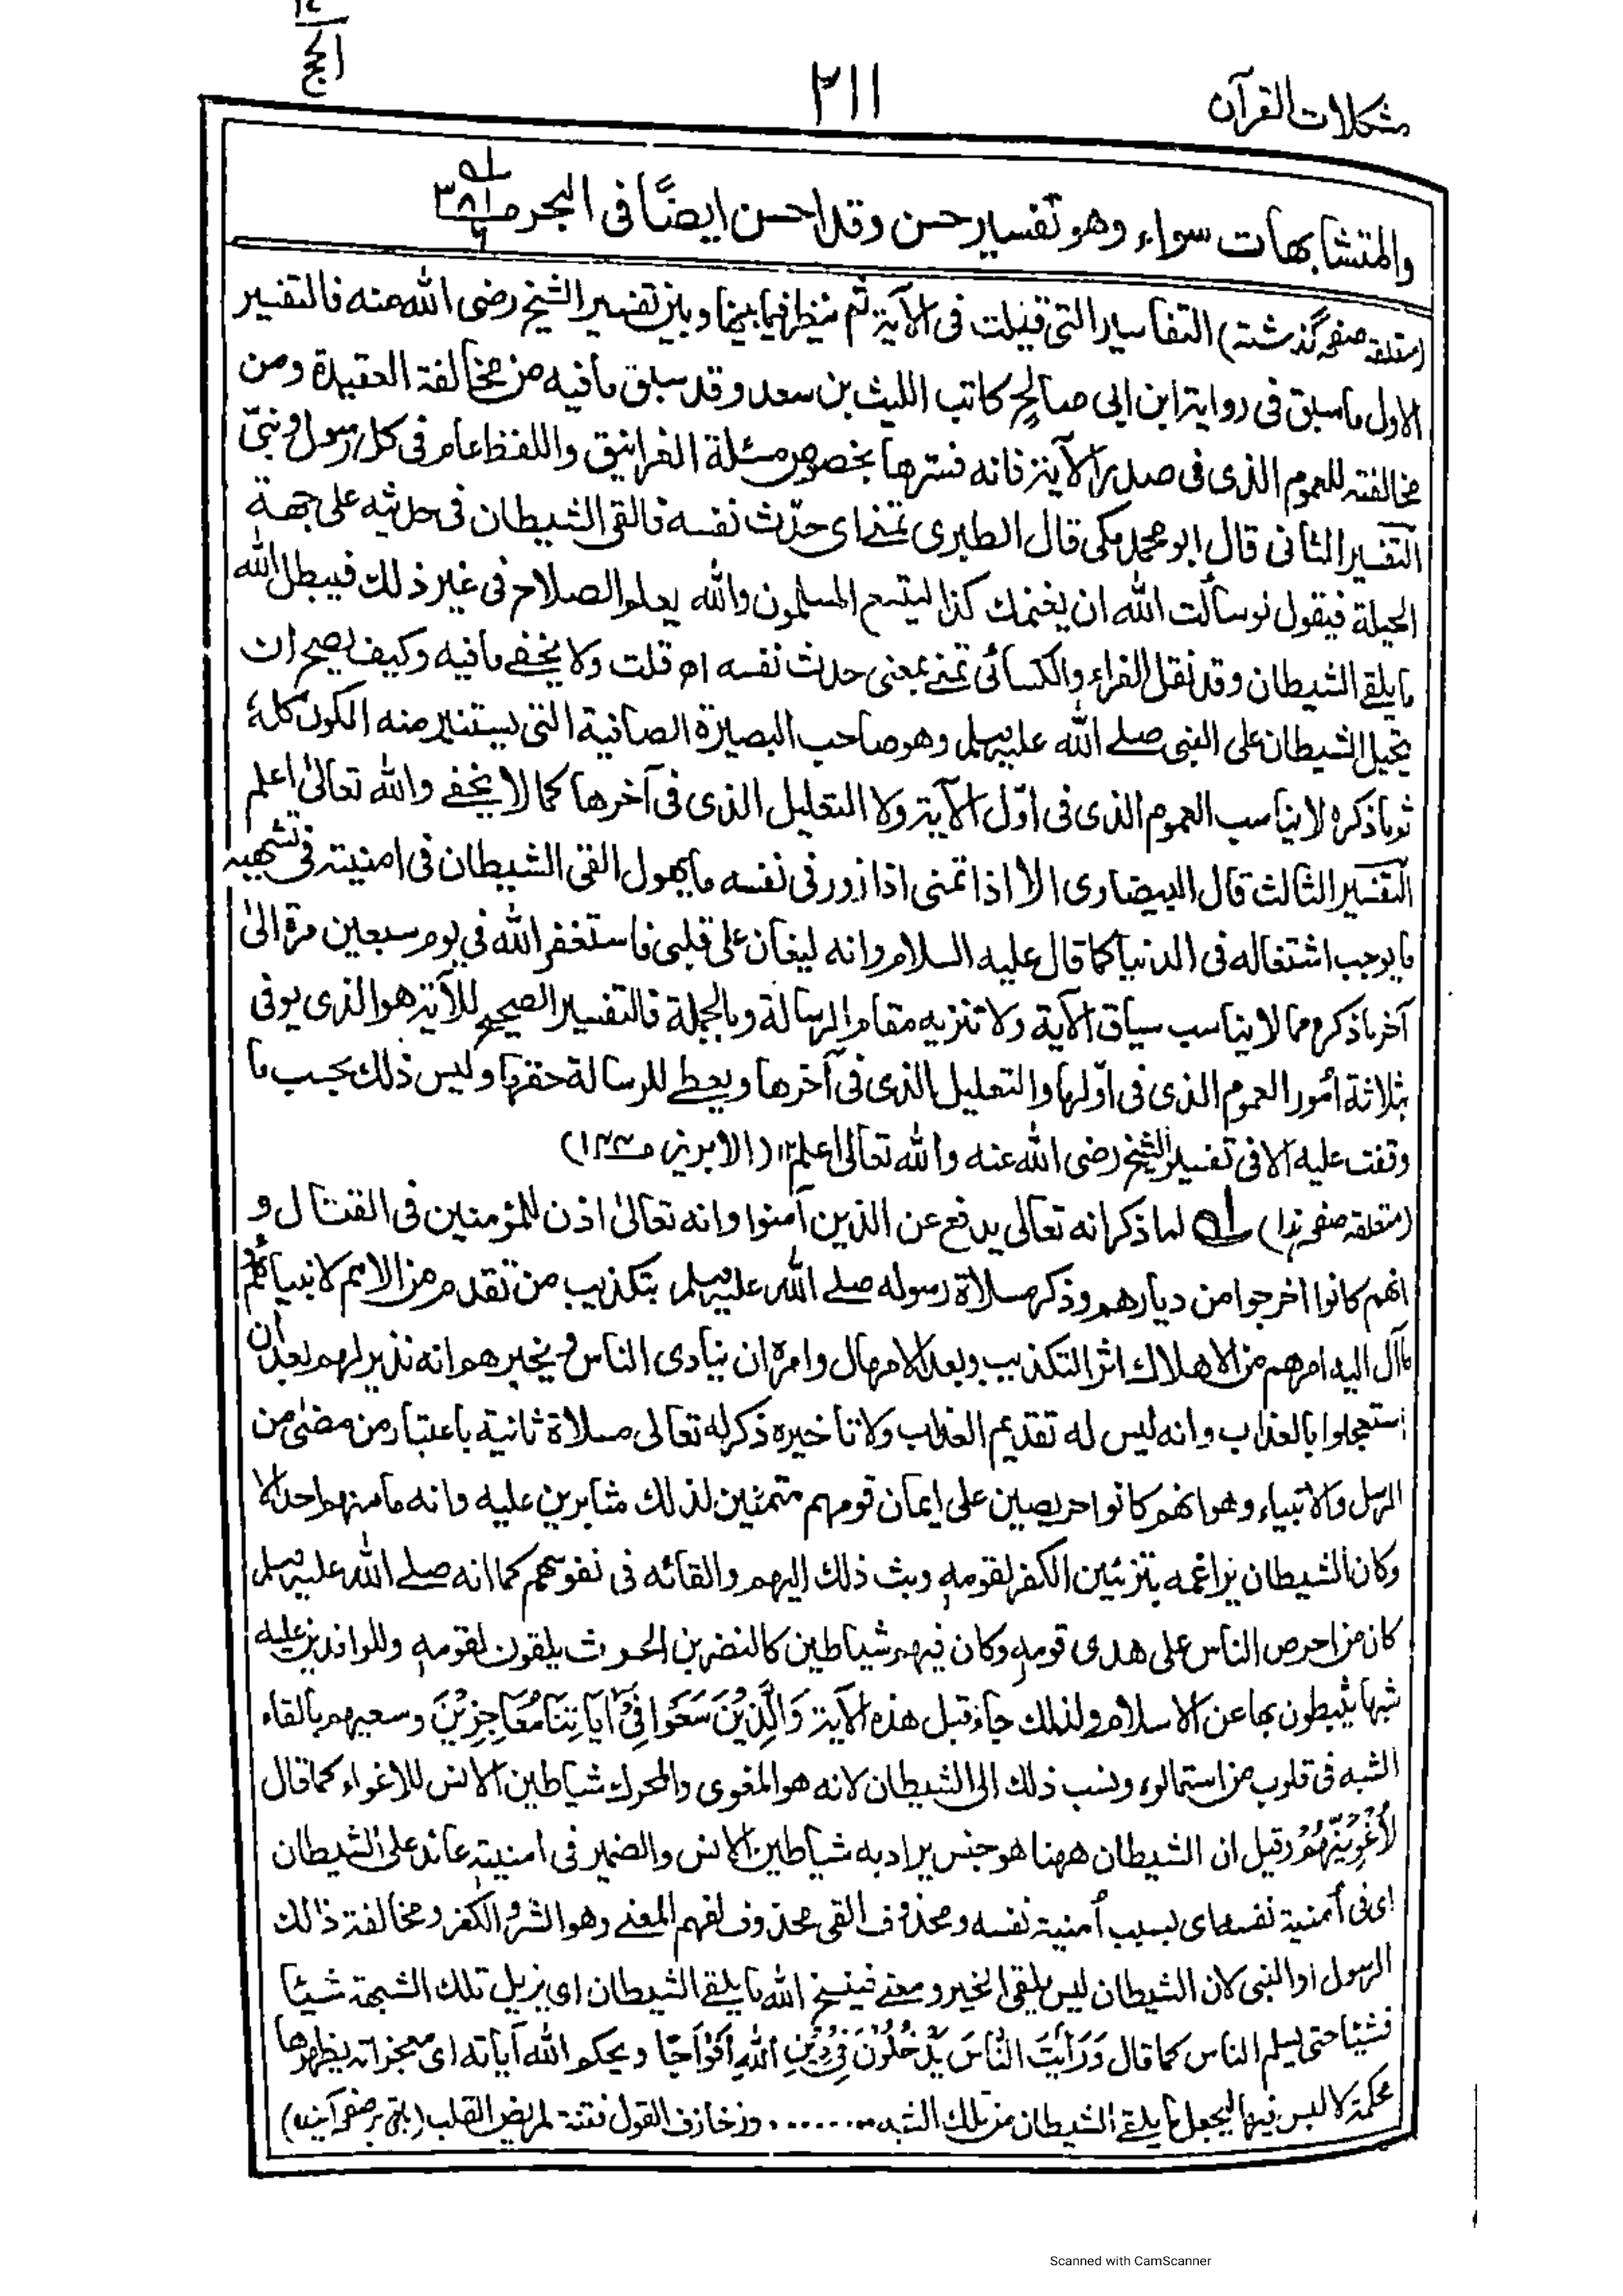 الحج
۲۱۱
مشكلات القرآن
والمتشابهات سواء وهو تفسير حسن وقد احسن ايضًا فى البحر صـ۳۸۱ ج۶ لہ
(متعلقہ صفحہ گذشتہ) التفاسير التى قيلت فى الآية ثم ننظر فيما بينها وبين تفسير الشيخ رضى الله عنه فالتفسير
الاول ماسبق فى رواية ابن ابى صالح كاتب الليث بن سعد وقد سبق مافيه من مخالفة العقيدة ومن
مخالفته للعموم الذى فى صدر الآية فانه فسرها بخصوص مسئلة الغرانيق واللفظ عام فى كل رسول ونبىّ
التفسير الثانى قال ابو محمد مكى قال الطبرى تمنے اى حدّث نفسه فالقى الشيطان فى حديثه على جهة
الحيلة فيقول لو سألت الله ان يغنمك كذا ليتسع المسلمون والله يعلم الصلاح فى غير ذلك فيبطل الله
مايلقے الشيطان وقد نقل الفراء والكسائى تمنے بمعنى حدث نفسه اھ قلت ولا يخفے مافيه وكيف يصح ان
يحيل الشيطان على النبى صلے الله عليہ وسلم وهو صاحب البصيرة الصافية التى يستنير منه الكون كلهٗ
ثم ماذكره لايناسب العموم الذى فى اوّل الآية ولا التعليل الذى فى آخرها كما لا يخفے والله تعالىٰ اعلم
التفسير الثالث قال البيضاوى الا اذا تمنى اذا زور فى نفسه مايهول القى الشيطان فى امنيته فى تشهيه
مايوجب اشتغاله فى الدنيا كما قال عليه السلام وانه ليغان على قلبى فاستغفر الله فى يوم سبعين مرة الىٰ
آخر ماذكره مما لا يناسب سياق الآية ولا تنزيه مقام الرسالة وبالجملة فالتفسير الصحيح للآية هو الذى يوفى
بثلاثة امُور العموم الذى فى اوّلها والتعليل الذى فى آخرها ويعطے للرسالة حقها وليس ذلك بحسب ما
وقفت عليه الا فى تفسير الشيخ رضى الله عنه والله تعالىٰ اعلم ۱۲ (الابريز صـ۱۳۳)
(متعلقہ صفحہ ہذا) لہ لما ذكر انه تعالى يدفع عن الذين آمنوا وانه تعالىٰ اذن للمؤمنين فى القتال و
انهم كانوا اخرجوا من ديارهم وذكر مسلاة رسوله صلے الله عليہ وسلم بتكذيب من تقدم من الامم لانبيائهم و
ماآل اليه امرهم من الاهلاك اثر التكذيب وبعد الامهال وامره ان ينادى الناس و يخبرهم انه نذير لهم بعد ان
استعجلوا بالعذاب وانه ليس له تقديم العذاب ولا تاخيره ذكر له تعالى مسلاة ثانية باعتبار من مضىٰ من
الرسل والانبياء وهو انهم كانوا حريصين على ايمان قومهم متمنين لذلك مثابرين عليه وانه مامنهم احد الا
وكان الشيطان يراغمه بتزئين الكفر لقومهٖ وبث ذلك اليهم والقائه فى نفوسهم كما انه صلے الله عليہ وسلم
كان من احرص الناس على هدى قومهٖ وكان فيهم شياطين كالنضر بن الحرث يلقون لقومهٖ وللوافدين عليه
شبها يثبطون بها عن الاسلام ولذلك جاء قبل هذه الآية وَالَّذِيْنَ سَعَوْا فِىْٓ اٰيَاتِنَا مُعَاجِزِيْنَ وسعيهم بالقاء
الشبه فى قلوب من استمالوه ونسب ذلك الى الشيطان لانه هو المغوى والمحرك شياطين الانس للاغواء كما قال
لَاُغْوِيَنَّهُمْ وقيل ان الشيطان ههنا هو جنس يراد به شياطين الانس والضمير فى امنيتهٖ عائد على الشيطان
اى فى اُمنية نفسه اى بسبب اُمنية نفسه ومحذوف القى محذوف لفهم المعنے وهو الشر والكفر ومخالفة ذالك
الرسول او النبى لان الشيطان ليس يلقى الخير ومعنے فينسخ الله مايلقے الشيطان اى يزيل تلك الشبهة شيئا
فشيئا حتى يسلم الناس كما قال وَرَاَيْتَ النَّاسَ يَدْخُلُوْنَ فِىْ دِيْنِ اللّٰهِ اَفْوَاجًا ويحكم الله آياته اى معجزاته يظهرها
محكمة لا لبس فيها ليجعل ما يلقے الشيطان من تلك الشبه ........ وزخارف القول فتنة لمريض القلب (باقى بر صفحہ آئندہ)
Scanned with CamScanner